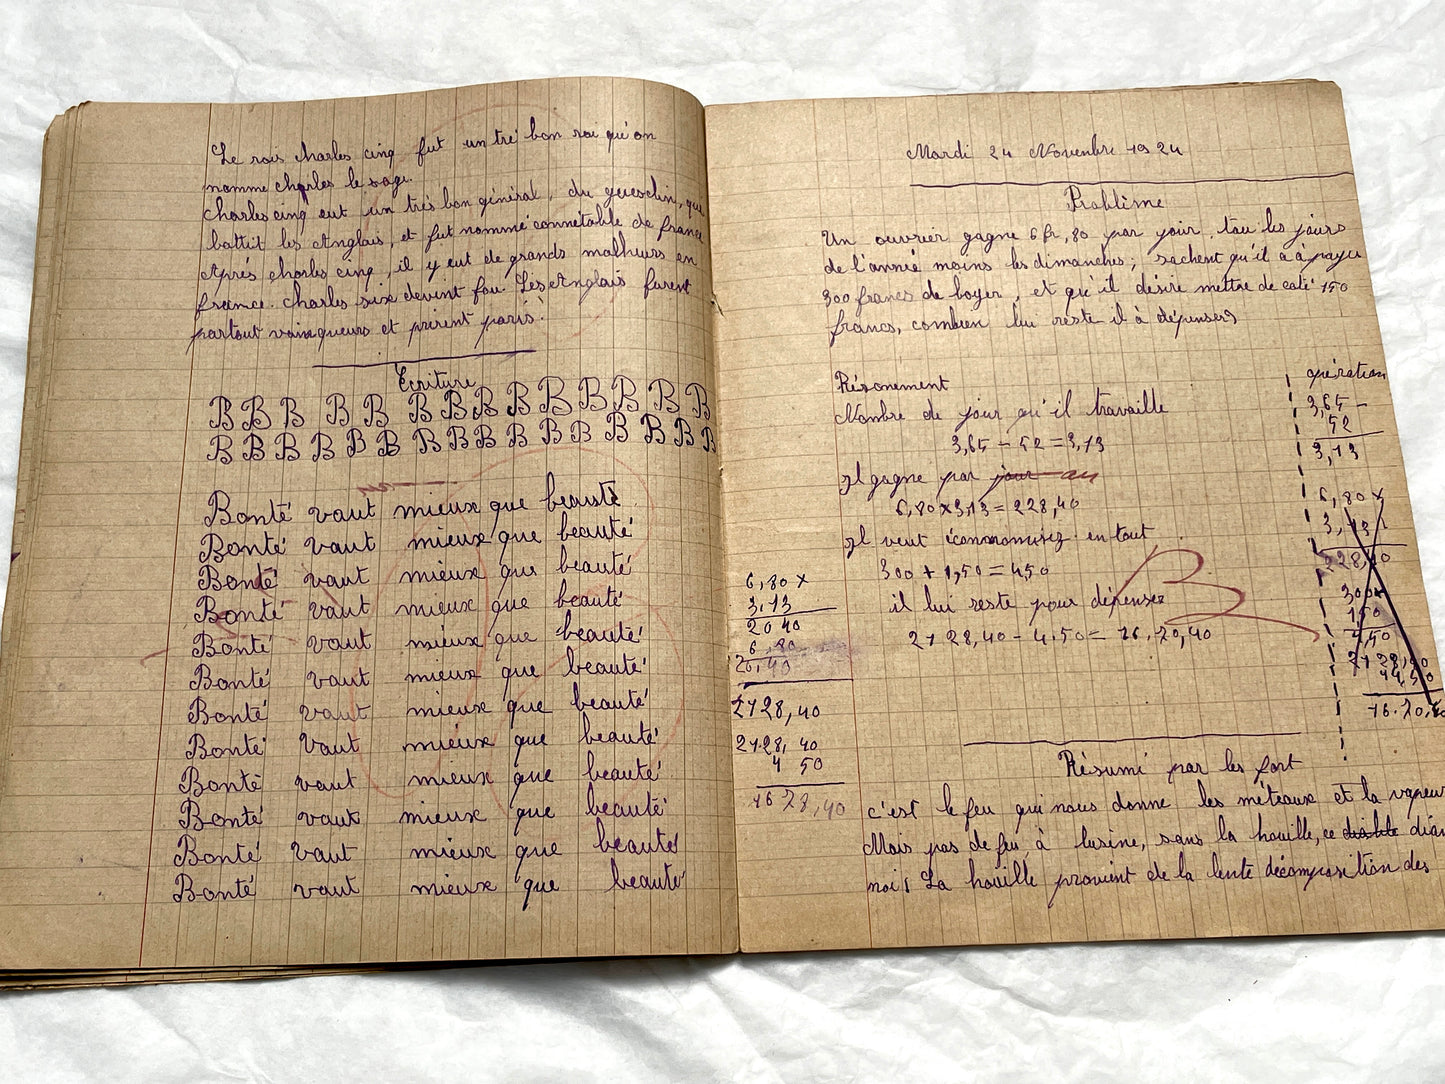 Le rois charles cinq fut un tré bon roi qu'on
nomme charles le sage.
charles cinq eut un très bon général, du guesclin, que
battit les Anglais, et fut nommé connétable de france
Après charles cinq, il y eut de grands malheurs en
france. charles six devint fou. Les Anglais furent
partout vainqueurs et prirent paris.
Ecriture
B B B B B B B B B B B B B B
B B B B B B B B B B B B B B B
Bonté vaut mieux que beauté
Bonté vaut mieux que beauté
Bonté vaut mieux que beauté
Bonté vaut mieux que beauté
Bonté vaut mieux que beauté
Bonté vaut mieux que beauté
Bonté vaut mieux que beauté
Bonté vaut mieux que beauté
Bonté vaut mieux que beauté
Bonté vaut mieux que beauté
Bonté vaut mieux que beauté
Bonté vaut mieux que beauté
Mardi 24 Novembre 1924
Problème
Un ouvrier gagne 6 fr, 80 par jour, tou les jours
de l'année moins les dimanches; sachent qu'il a à payer
300 francs de loyer, et qu'il désire mettre de coté 150
francs, combien lui reste il à dépenser,
Résonement
Nombre de jour qu'il travaille
3,65 - 52 = 3,13
Il gagne par jour an
6,80 x 3,13 = 228,40
Il veut économisez en tout
300 + 1,50 = 450
il lui reste pour dépenser
2128,40 - 4.50 = 16.70,40
B
opération
3,65 -
52
3,13
6,80 x
3,13
228,40
300
1,50
4,50
2128,40
4,50
16.70,40
6,80 x
3,13
20 40
6 80
20,40
2128,40
2128,40
4 50
1678,40
Résumé par les fort
c'est le feu qui nous donne les méteaux et la vapeur
Mais pas de feu, à lusine, sans la houille, ce diable
noir, La houille provient de la lente décomposition des